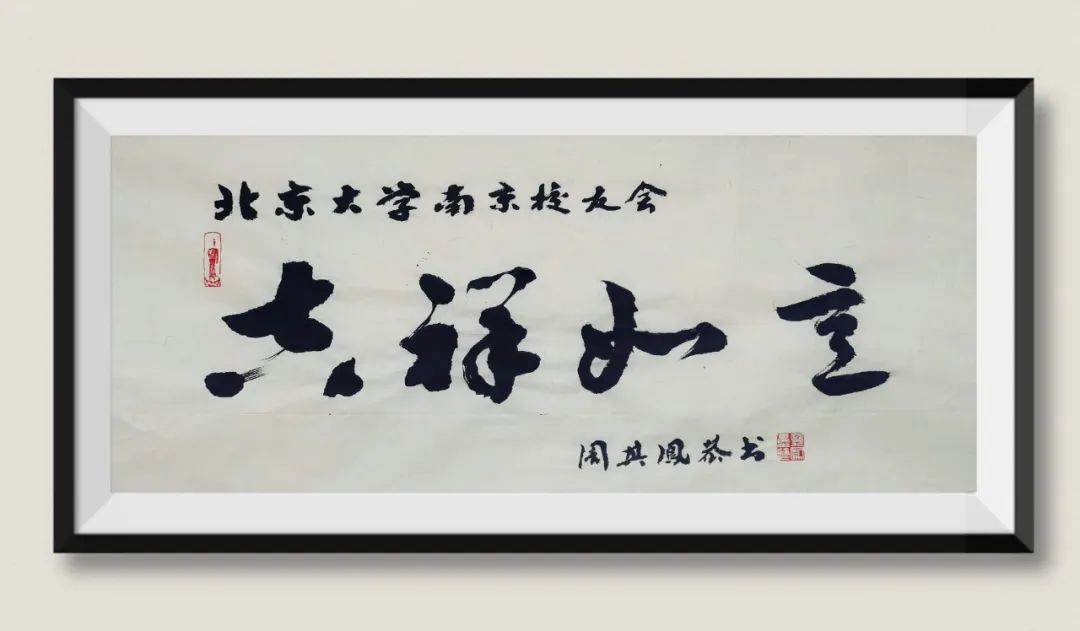 北京大学南京校友会
吉祥如意
周其凤恭书